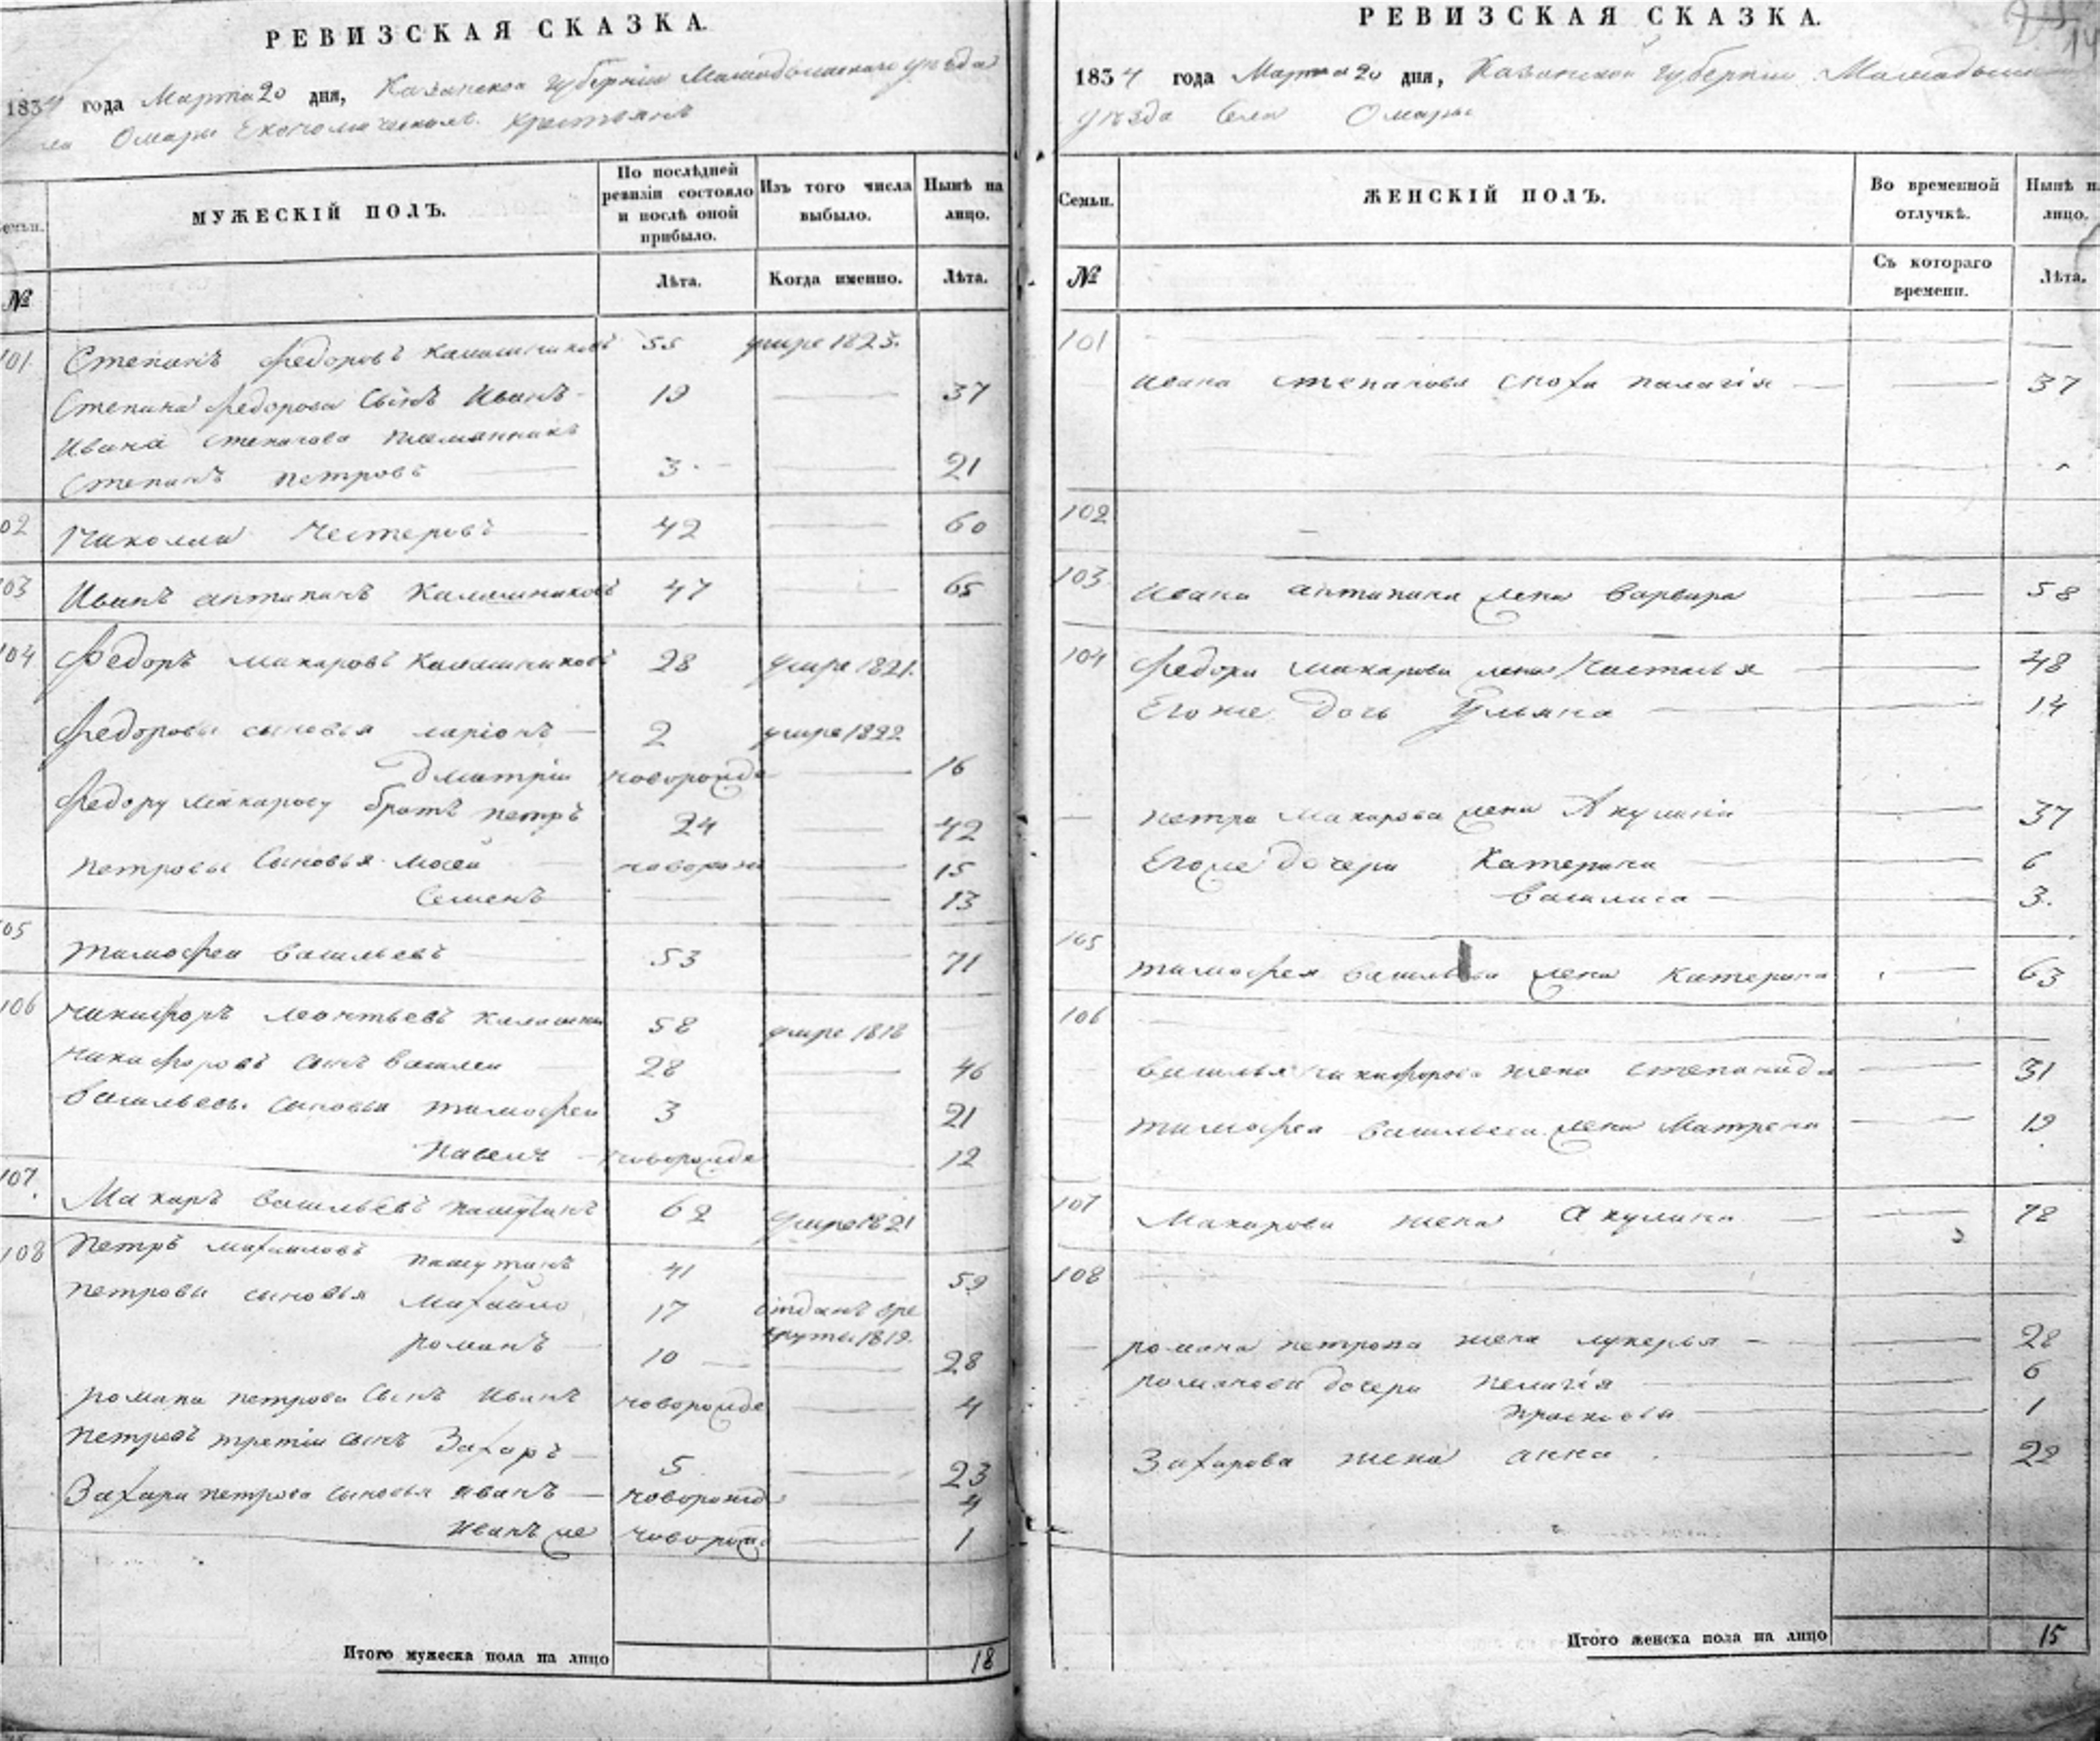 РЕВИЗСКАЯ СКАЗКА.
1834 года Марта 20 дня, Казанской губернии Мамадышскаго уезда
села Омары Економическихъ крестьянъ
Семьи.
МУЖЕСКІЙ ПОЛЪ.
По послѣдней ревизіи состояло и послѣ оной прибыло.
Изъ того числа выбыло.
Нынѣ на лицо.
№
Лѣта.
Когда именно.
Лѣта.
101 Степанъ Федоровъ Калашниковъ 55 умре 1823.
Степана Федорова сынъ Иванъ 19 37
Ивана Степанова племянникъ
Степанъ Петровъ 3 21
102 Николаи Нестеровъ 42 60
103 Иванъ Антипинъ Калашниковъ 47 65
104 Федоръ Макаровъ Калашниковъ 28 умре 1821.
Федоровы сыновья Ларіонъ 2 умре 1822
Дмитріи новорожде 16
Федору Макарову братъ Петръ 24 42
Петровы сыновья Мосей новорож 15
Семенъ 13
105 Тимофеи Васильевъ 53 71
106 Никифоръ Леонтьевъ Калашни 58 умре 1818
Никифоровъ сынъ Василеи 28 46
Васильевы сыновья Тимофеи 3 21
Павелъ новорожде 12
107. Макаръ Васильевъ Пашутинъ 62 умре 1821
108 Петръ Михаиловъ Пашутинъ 41 59
Петровы сыновья Михайло 17 отданъ вре
круты 1819.
Романъ 10 28
Романа Петрова сынъ Иванъ новорожде 4
Петровъ третіи сынъ Захаръ 5 23
Захара Петрова сыновья Иванъ новорожд 4
Иванъ же новорож 1
Итого мужеска пола на лицо 18
РЕВИЗСКАЯ СКАЗКА.
1834 года Марта 20 дня, Казанской губернии Мамадышскаго
уезда села Омары
Семьи.
ЖЕНСКІЙ ПОЛЪ.
Во временной отлучкѣ.
Нынѣ на лицо.
№
Съ котораго времени.
Лѣта.
101
Ивана Степанова сноха Палагія 37
102
103 Ивана Антипина жена Варвара 58
104 Федора Макарова жена Насталья 48
Его же дочь Ульяна 14
Петра Макарова жена Акулина 37
Его же дочери Катерина 6
Василиса 3.
105 Тимофея Васильева жена Катерина 63
106
Василья Никифорова жена Степанида 31
Тимофеа Васильева жена Матрена 19
107 Макарова жена Акулина 72
108
Романа Петрова жена Лукерья 28
Романовы дочери Пелагія 6
Прасковья 1
Захарова жена Анна 22
Итого женска пола на лицо 15